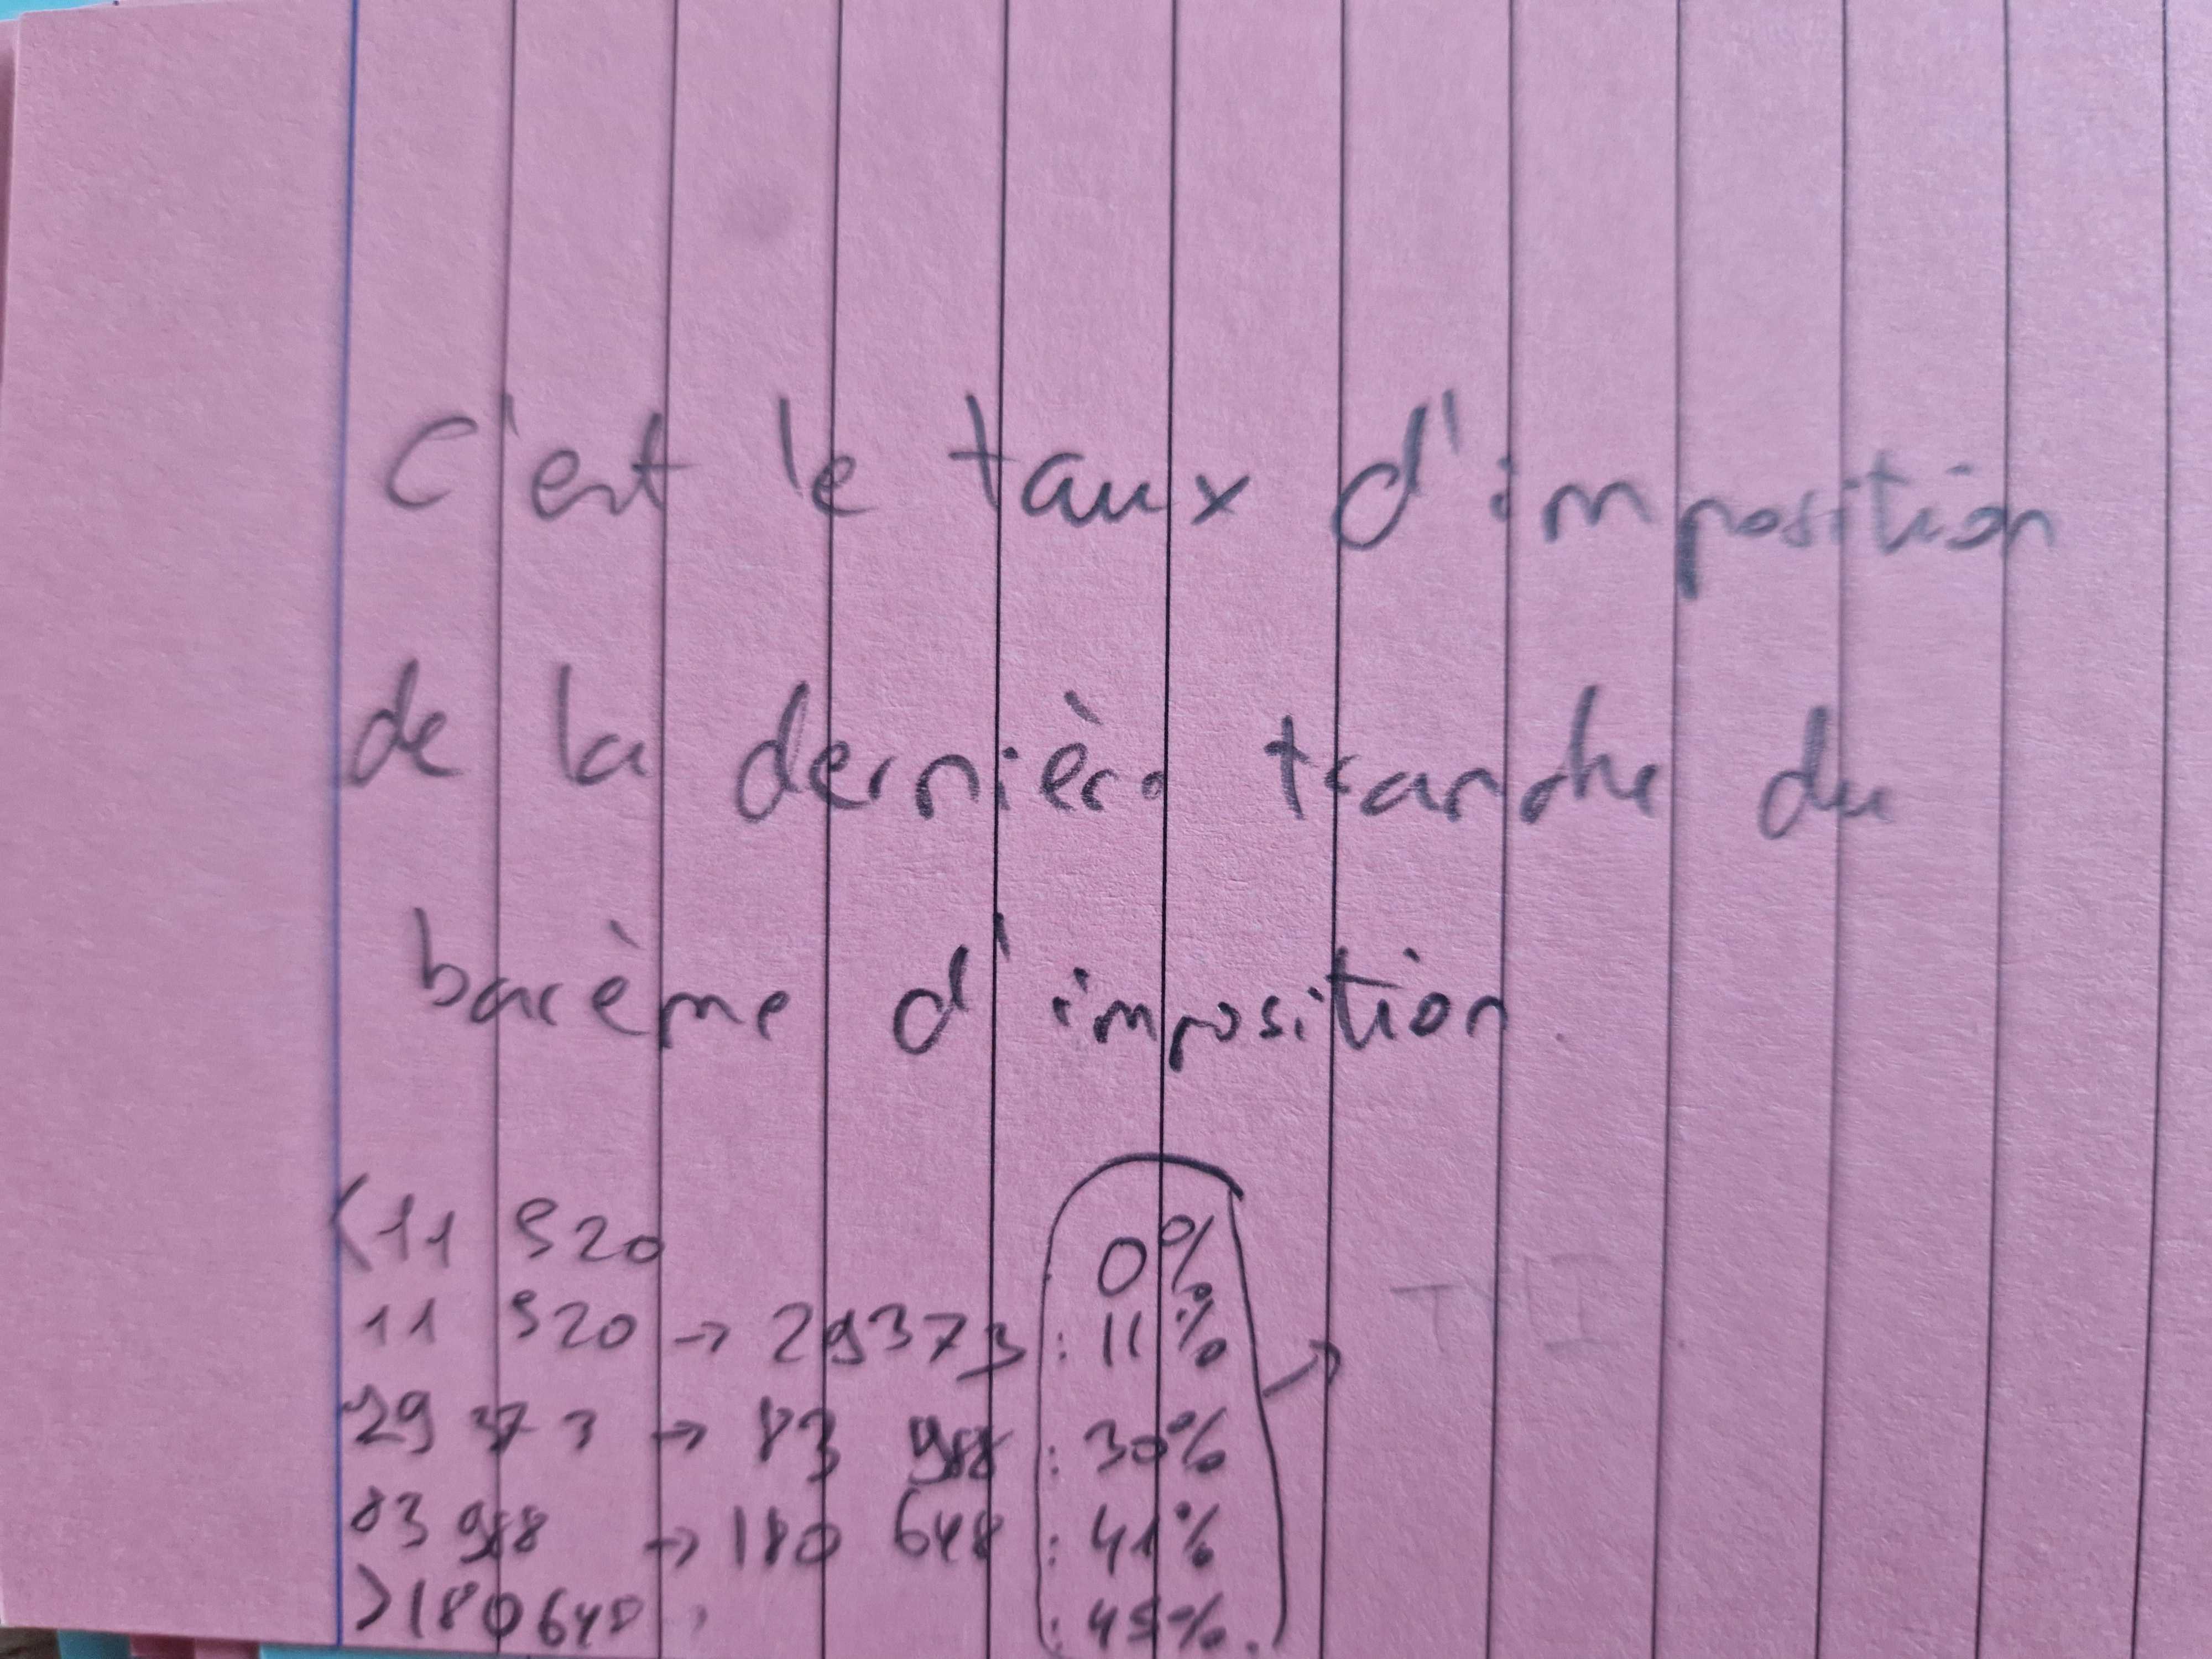 C'est le taux d'imposition
de la dernière tranche du
barème d'imposition.
<11 520 : 0%
11 520 → 29373 : 11%
29 373 → 83 988 : 30%
83 988 → 180 648 : 41%
>180648 : 45%.
→ TMI